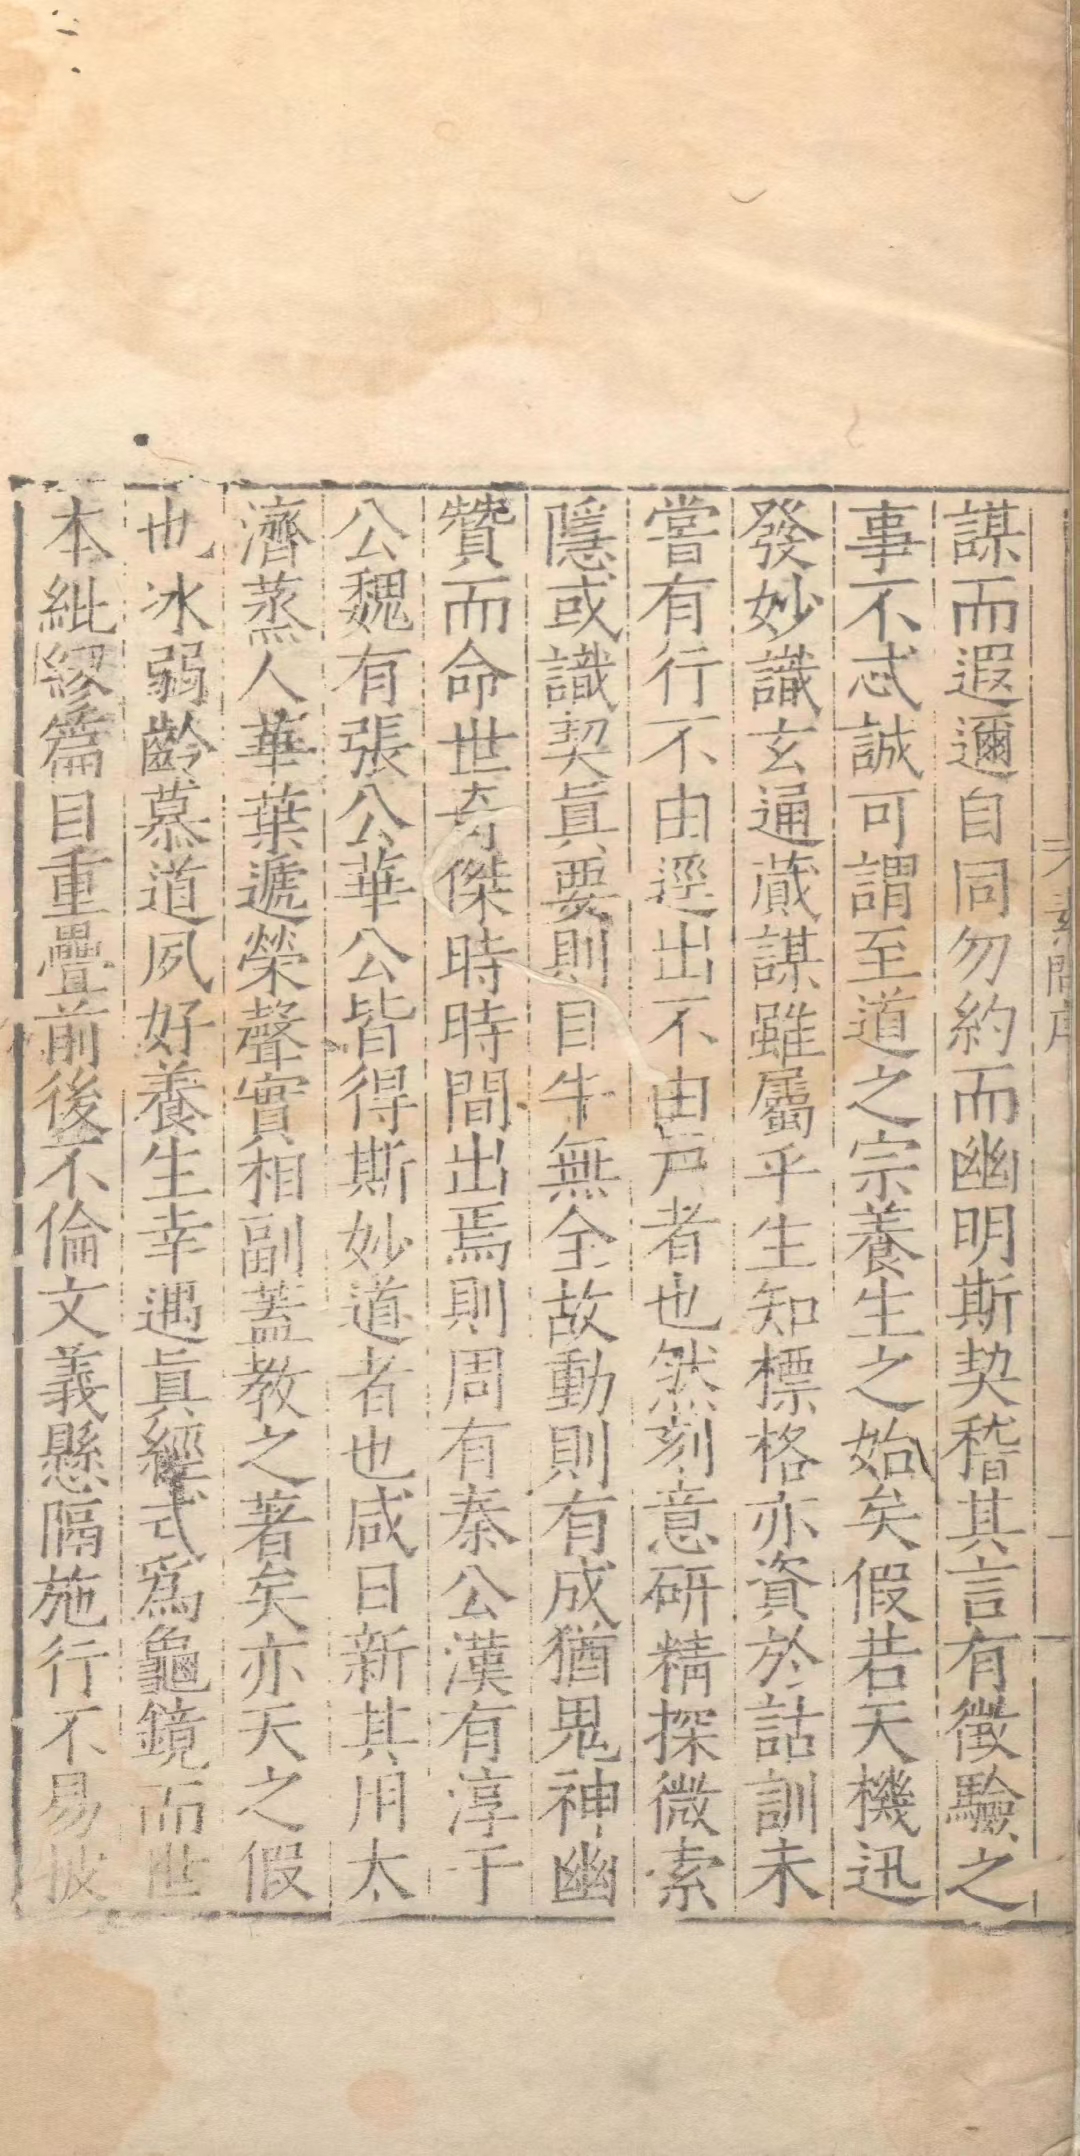 素問序
謀而遐邇自同勿約而幽明斯契稽其言有徵驗之
事不忒誠可謂至道之宗養生之始矣假若天機迅
發妙識玄通蕆謀雖屬乎生知標格亦資於詁訓未
嘗有行不由逕出不由戸者也然刻意研精探微索
隱或識契眞要則目牛無全故動則有成猶鬼神幽
贊而命世奇傑時時間出焉則周有秦公漢有淳于
公魏有張公華公皆得斯妙道者也咸日新其用大
濟蒸人華葉遞榮聲實相副蓋教之著矣亦天之假
也冰弱齡慕道夙好養生幸遇眞經式爲龜鏡而世
本紕繆篇目重疊前後不倫文義懸隔施行不易披